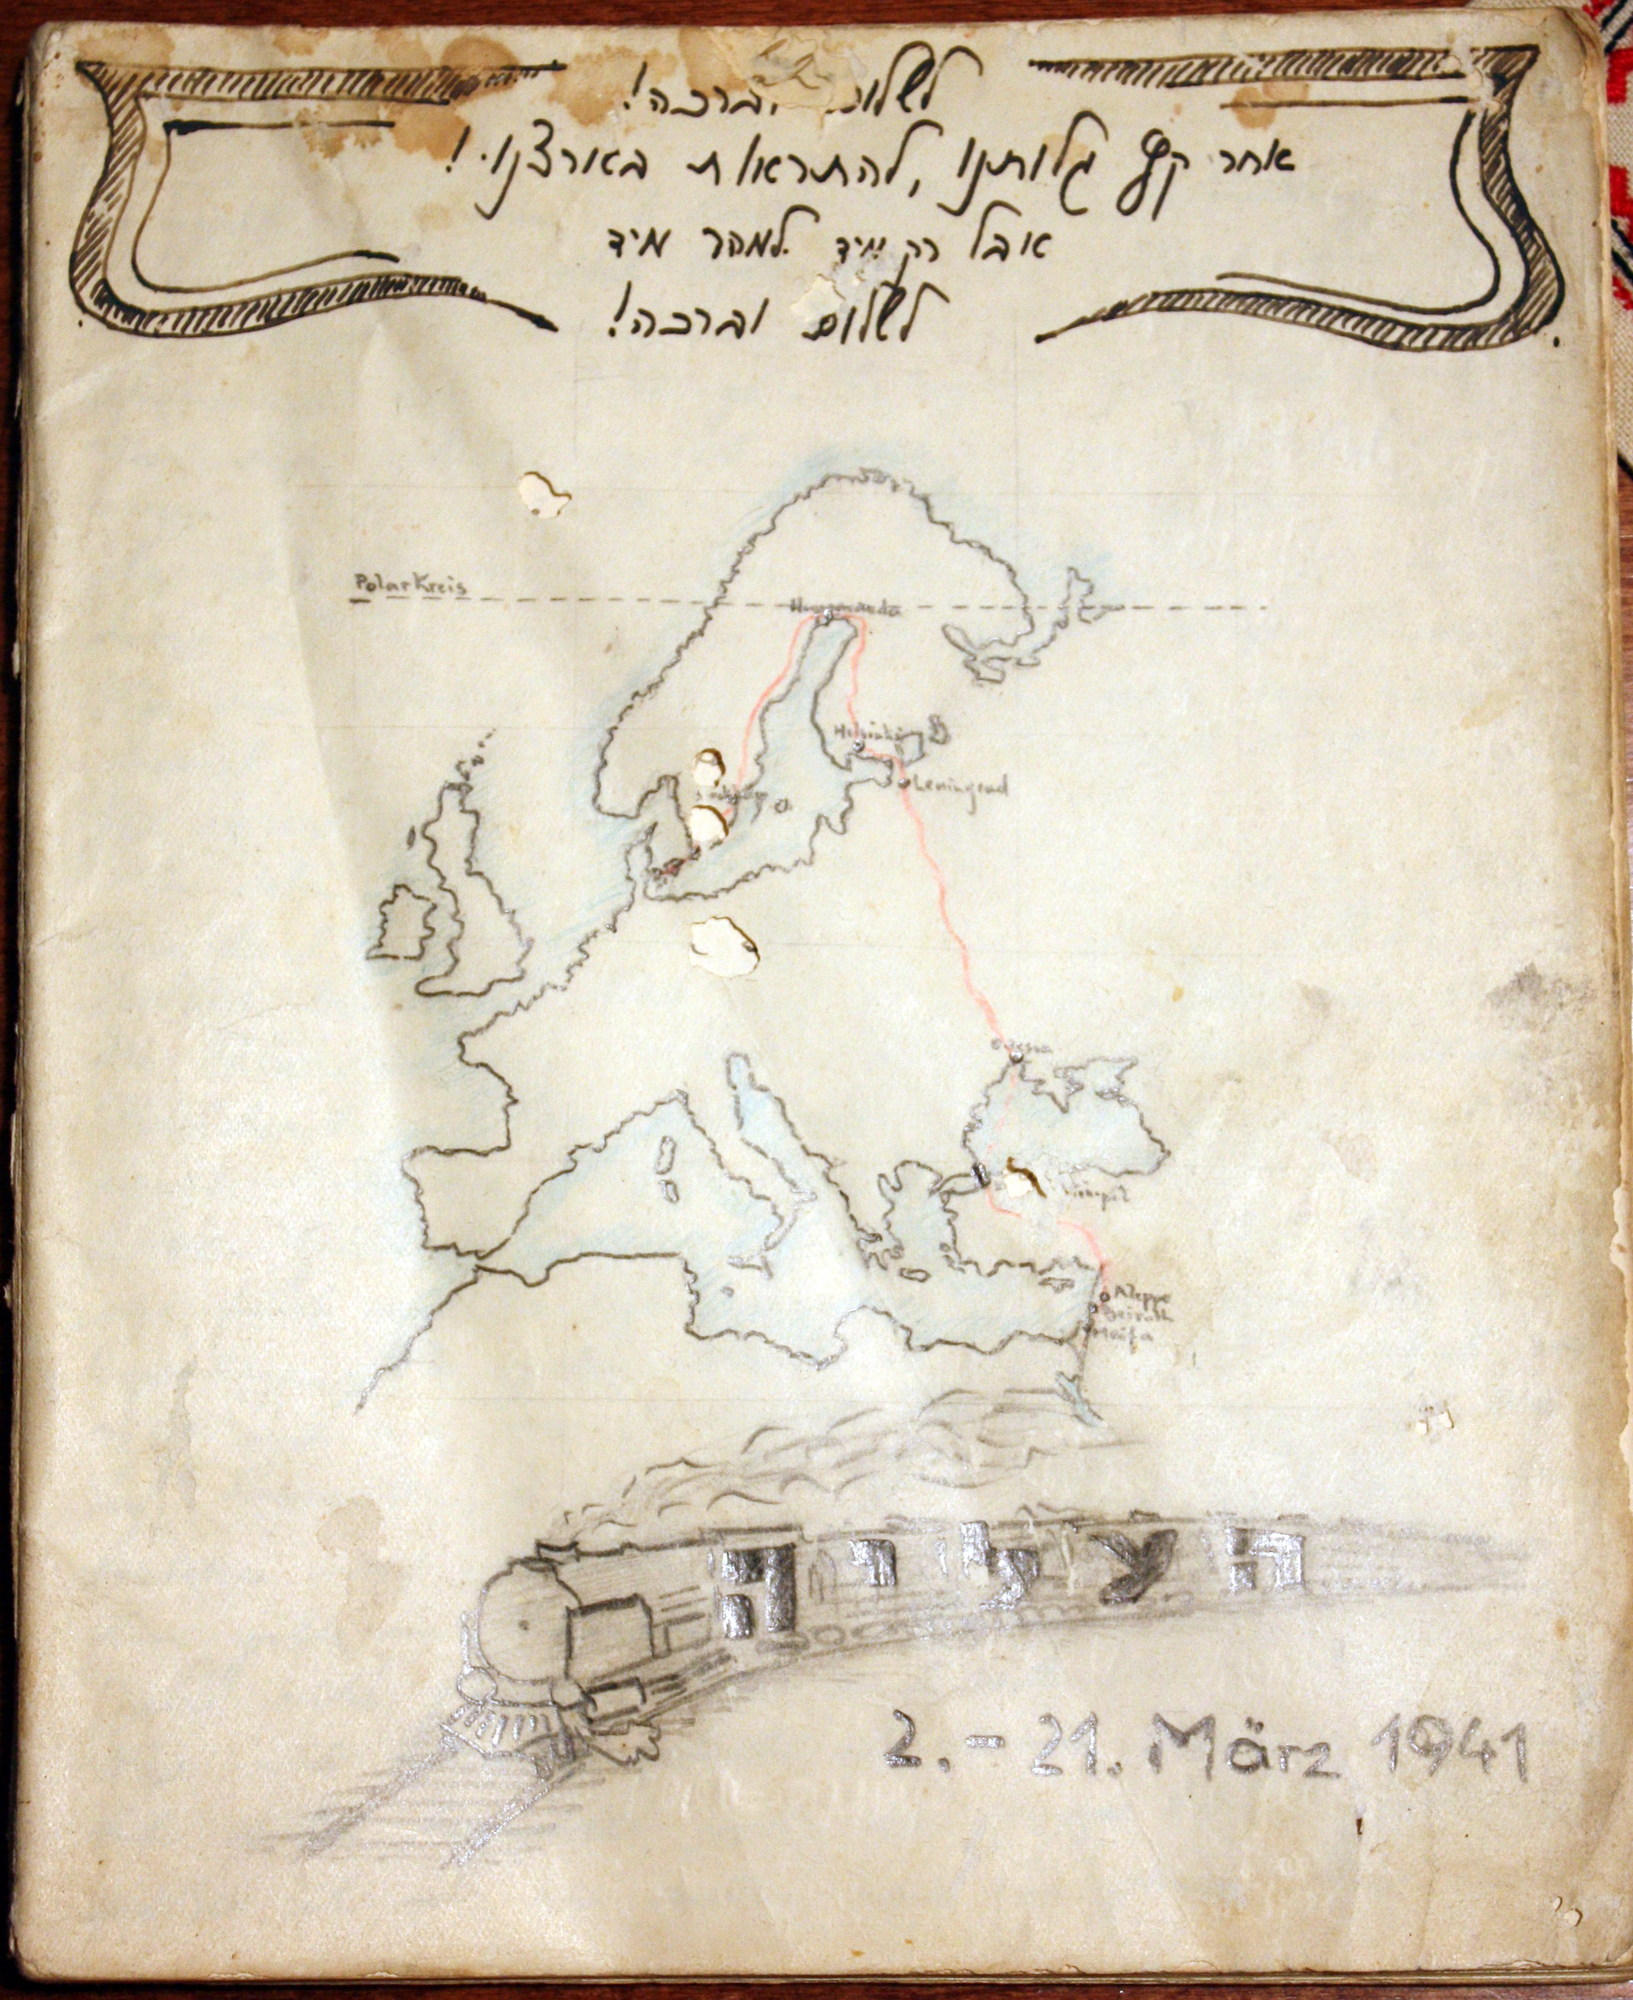 לשלום וברכה!
אחר קץ גלותנו, להתראות בארצנו!
אבל רק מיד למהר מיד
לשלום וברכה!
Polarkreis
Haparanda
Helsinki
Leningrad
Odessa
Aleppo
Beiruth
Haifa
העליה
2.-21. März 1941